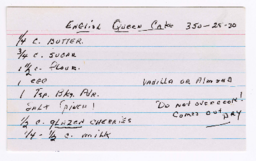 English Queen Cake 350-25-30
1/4 c. Butter
3/4 c. Sugar
1 1/2 c. flour
1 egg Vanilla or Almond
1 Tsp. Bkg. Pdr.
salt (pinch) "Do not overcook!
1/2 c. glazed cherries Comes out dry
1/4 - 1/2 c. milk